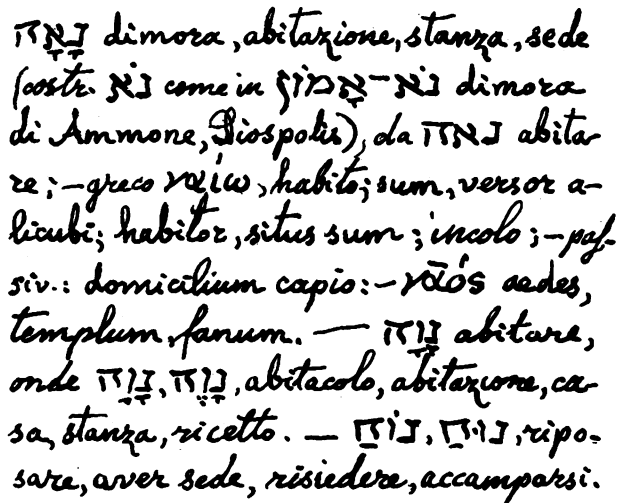 נָאָה dimora, abitazione, stanza, sede
(costr. נֹא come in נֹא־אָמוֹן dimora
di Ammone, Diospolis), da נאה abita-
re; — greco ναίω, habito; sum, versor a-
licubi; habitor, situs sum; incolo; — pas-
siv.: domicilium capio: — νᾱός aedes,
templum, fanum. — נָוָה abitare,
onde נָוֶה, נָוָה, abitacolo, abitazione, ca-
sa, stanza, ricetto. — נוּחַ, נוֹחַ, ripo-
sare, aver sede, risiedere, accamparsi.